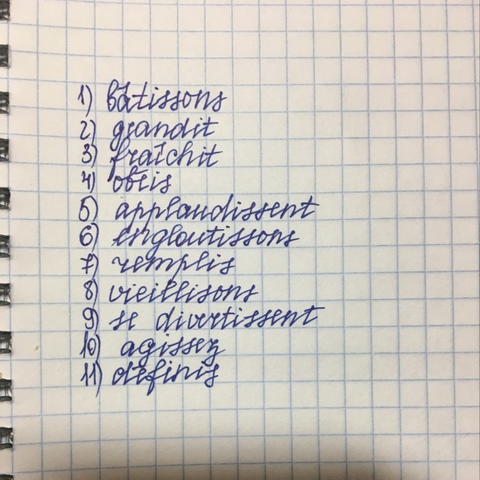 1) bâtissons
2) grandit
3) fraîchit
4) obéis
5) applaudissent
6) engloutissons
7) remplis
8) vieillisons
9) se divertissent
10) agissez
11) définis